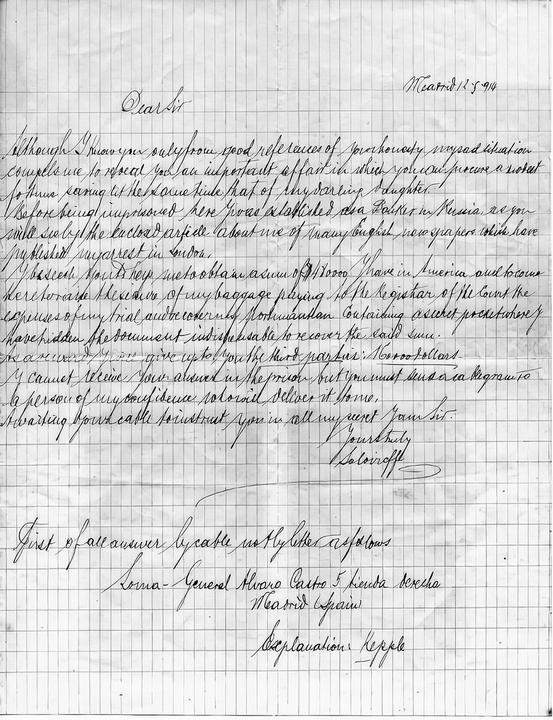 Madrid 12 5 914
Dear Sir
Although I know you only from good references of your honesty my sad situation
compels me to reveal you an important affair in which you can procure a modest
fortune saving at the same time that of my darling daughter.
Before being imprisoned here I was established as a Banker in Russia as you
will see by the enclosed article about me of many English newspapers which have
published my arrest in London.
I beseech you to help me to obtain a sum of $ 480000 I have in America and to come
here to raise the seizure of my baggage paying to the Registrar of the Court the
expenses of my trial and recover my portmanteau containing a secret pocket where I
have hidden the document indispensable to recover the said sum.
As a reward I will give up to you the third part viz: 160000 dollars.
I cannot receive your answer in the prison but you must send a cablegram to
a person of my confidence who will deliver it to me.
Awaiting your cable to instruct you in all my secret I am Sir.
Yours truly
First of all answer by cable not by letter as follows
General Alvaro Castro 5 tienda derecha
Madrid (Spain)
Explanation: Kepple